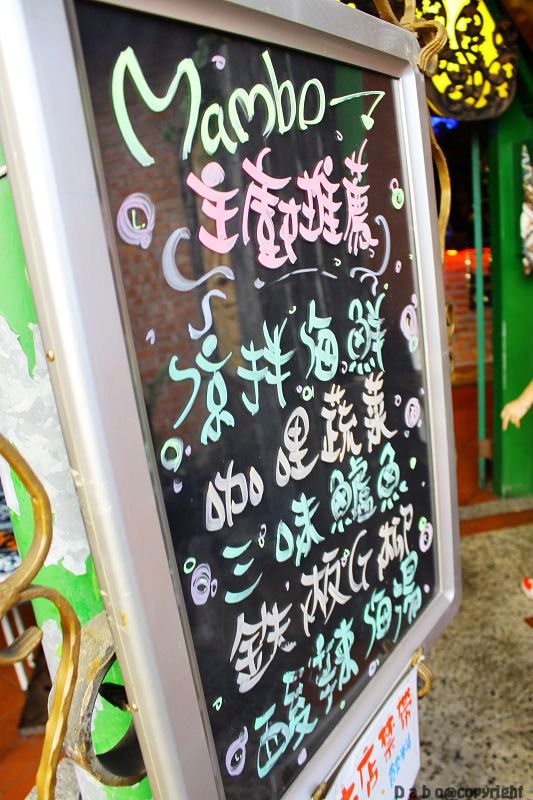 Mambo
主廚推薦
涼拌海鮮
咖哩蔬菜
三味鱸魚
鐵板G柳
酸辣海湯
店禁帶
Dabo@copyright